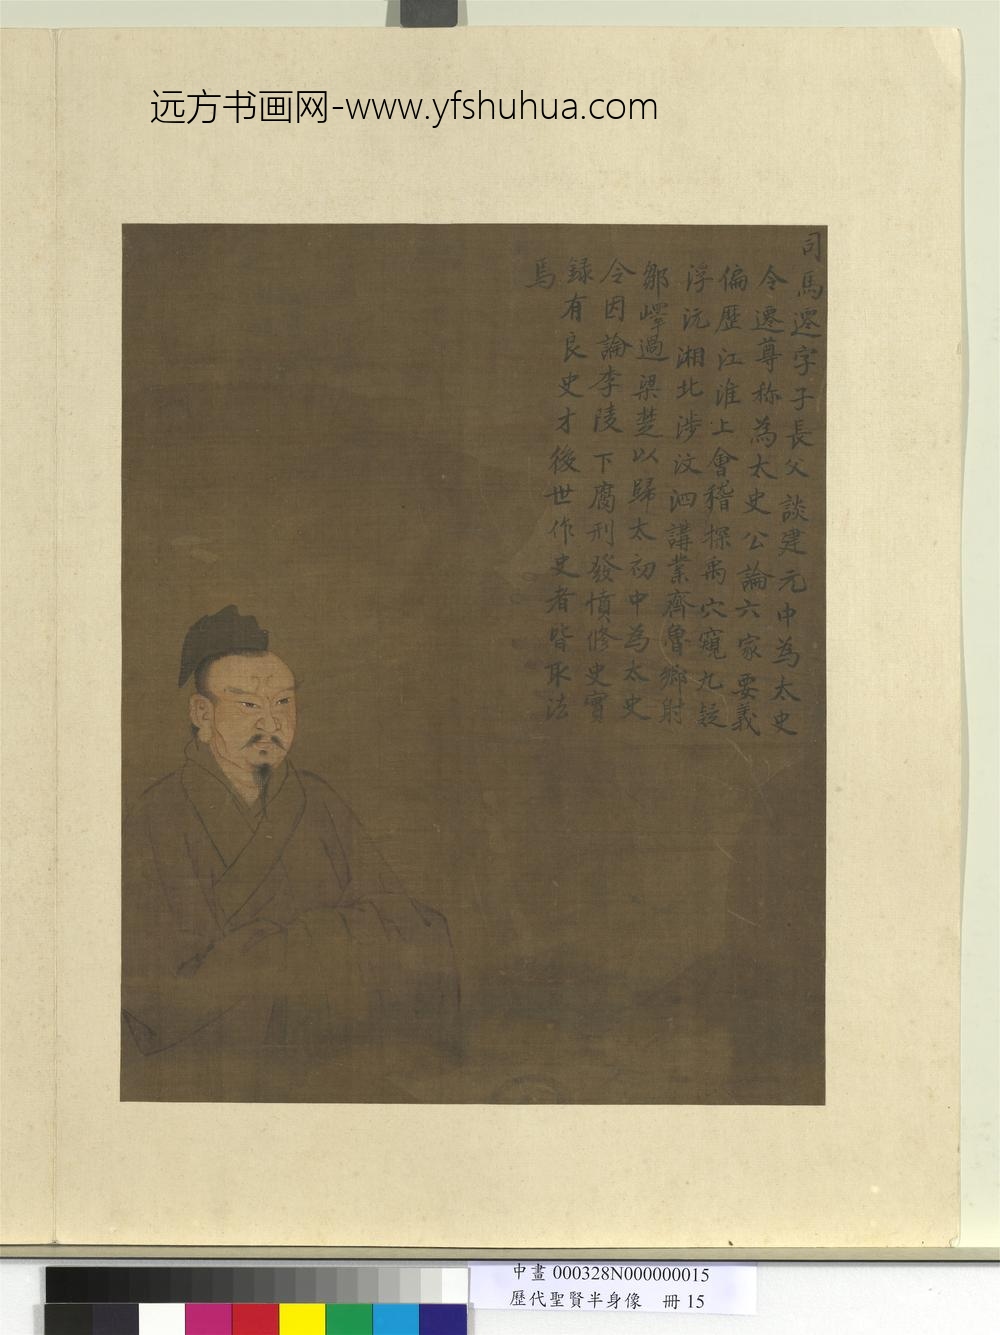 远方书画网-www.yfshuhua.com
司馬遷字子長父談建元中為太史
令遷尊称為太史公論六家要義
偏歷江淮上會稽探禹穴窺九疑
浮沅湘北涉汶泗講業齊魯鄉射
鄒嶧過梁楚以歸太初中為太史
令因論李陵下腐刑發憤修史實
録有良史才後世作史者皆取法
焉
中畫 000328N000000015
歷代聖賢半身像 冊 15